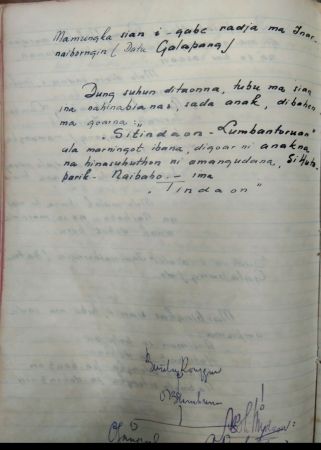 Mamungka sian i - gabe radja ma Inar-
naiborngin (Datu Galapang)
Dung suhun ditaonna, tubu ma sian
ina nahinabianai, sada anak, dibahen
ma goarna :"
"Sitindaon - Lumbantoruan"
ula marningot ibana, digoar ni anakna
na hinasuhuthon ni amangudana, Sihuta-
parik - Naibaho. - ima
"Tindaon"